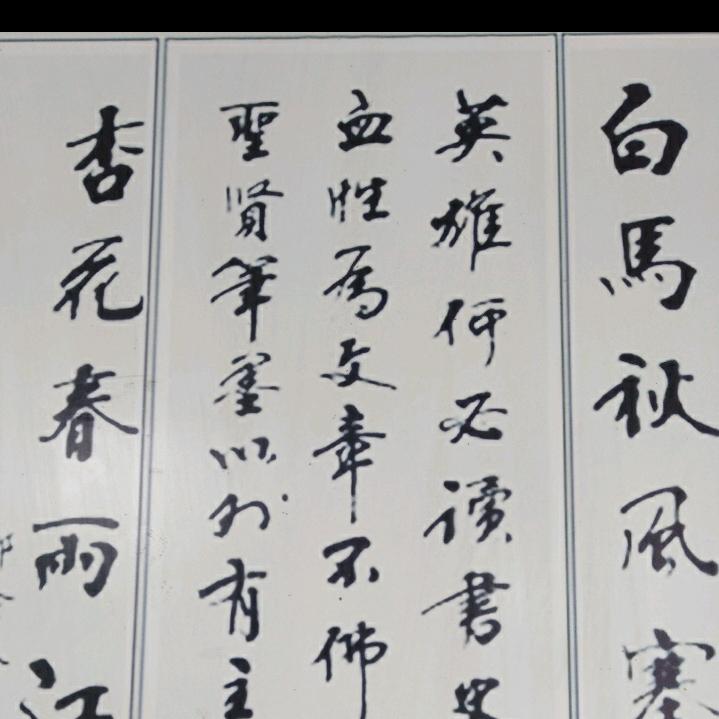 白馬秋風塞
英雄何必讀書史
血性為文章不佛
聖賢筆墨以外有主
杏花春雨江